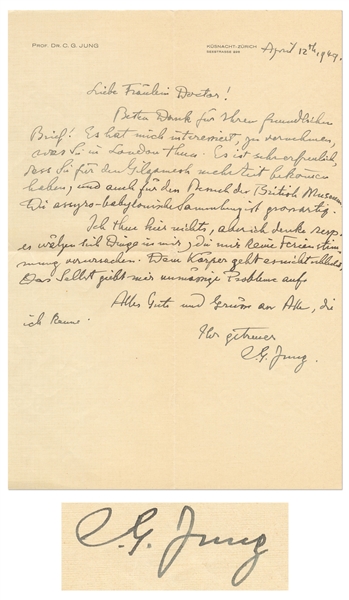 PROF. DR. C. G. JUNG
KÜSNACHT-ZÜRICH
SEESTRASSE 228
April 12th, 1949.
Liebe Fräulein Doctor!
Besten Dank für Ihren freundlichen
Brief! Es hat mich interessiert, zu vernehmen,
was Sie in London thun. Es ist sehr erfreulich,
dass Sie für den Gilgamesh mehr Zeit bekommen
haben, und auch für den Besuch des British Museum
Die assyro-babylonische Sammlung ist grossartig.
Ich thue hier nichts, aber ich denke resp.
es wälzen sich Dinge in mir, die mir keine Ferienstim
mung verursachen. Dem Körper geht es nicht schlecht,
Das Selbst giebt mir unmässige Probleme auf.
Alles Gute und Grüsse an Alle, die
ich kenne.
Ihr getreuer
C. G. Jung.
C. G. Jung